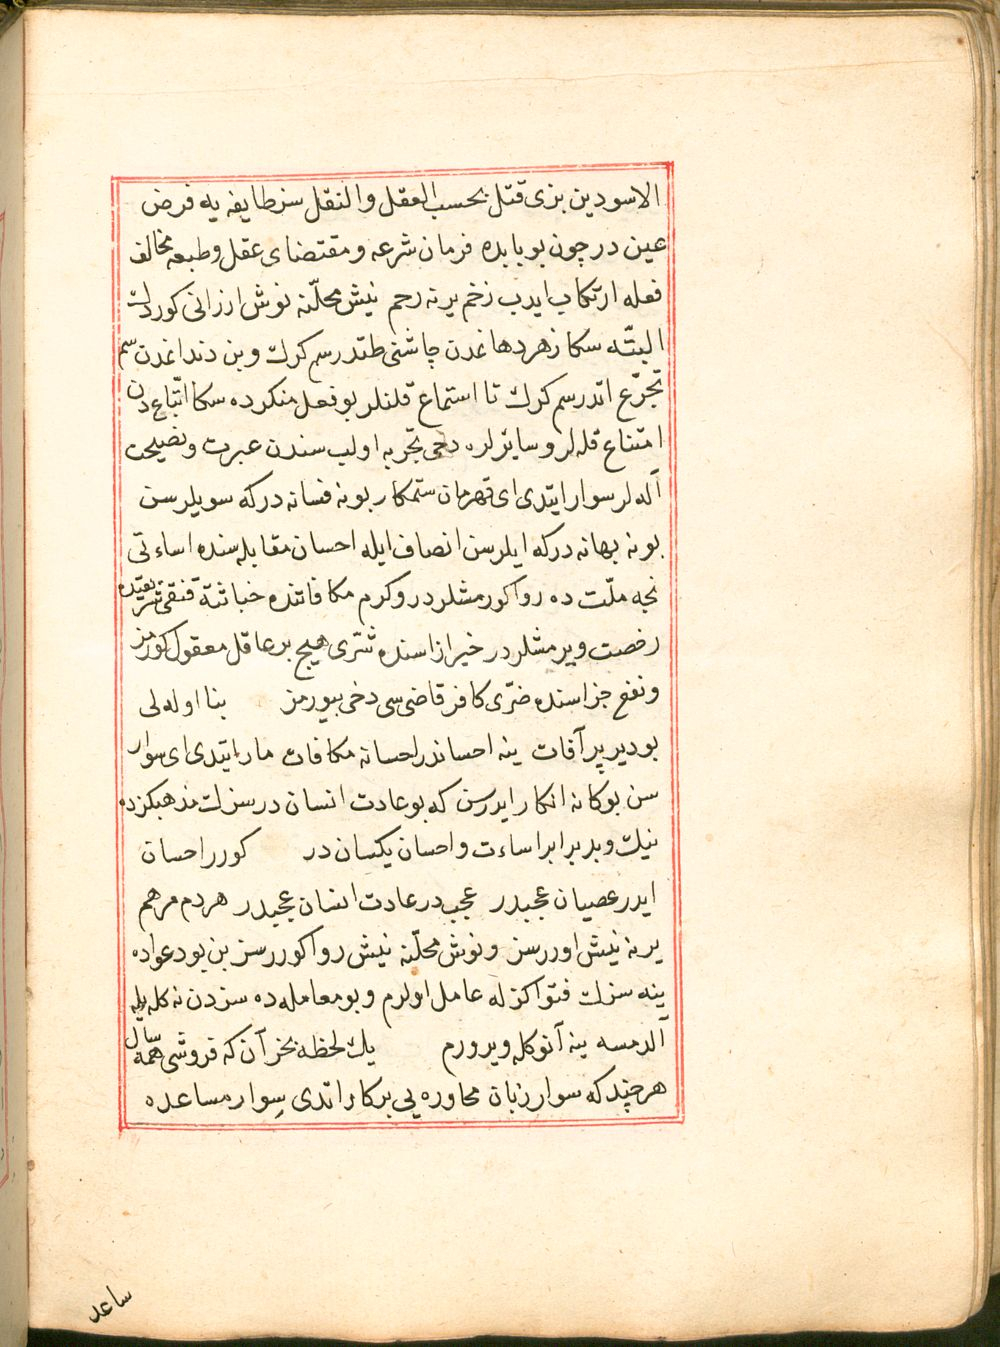 الاسودین بزی قتل بحسب العقل والنقل سز طایفه یه فرض
عین در چون بو بابده فرمان شرعه و مقتضای عقل و طبعه مخالف
فعله ارتکاب ایدب زخم یرنه رحم نیش محلّنه نوش ارزانی کوردك
البتّه سکا زهر دهاغدن چاشنی طتدرسم کرك و بن دنداغدن سم
تجرّع اتدرسم کرك تا استماع قلنلر بو فعل منکرده سکا اتّباع دن
امتناع قله لر و سایرلره دخی تجربه اولب سندن عبرت و نصیحت
آله لر سوار ایتدی ای قهرمان ستمکار بو نه فسانه در که سویلرسن
بو نه بهانه در که ایلرسن انصاف ایله احسان مقابله سنده اساءتی
نجه ملّت ده روا کورمشلردر و کرم مکافاتنده خباثته قنقی شریعتده
رخصت ویرمشلردر خیر ازاسنده شرّی هیچ بر عاقل معقول کورمز
و نفع جزاسنده ضرّی کافر قاضی سی دخی بیورمز بنا اوله لی
بو دیر پر آفات ینه احساندر احسانه مکافات مار ایتدی ای سوار
سن بوکا نه انکار ایدرسن که بو عادت انسان در سزك مذهبکزده
نیك و بد برابر اساءت و احسان یکسان در کورر احسان
ایدر عصیان عجبدر عجب در عادت انسان عجبدر هر دم مرهم
یرنه نیش اوررسز و نوش محلّنه نیش روا کوررسز بن بو دعواده
ینه سزك فتواکزله عامل اولرم و بو معامله ده سزدن نه کله یله
آلدمسه ینه آنوکله ویرورم یك لحظه بخر آن که فروشی همه سال
هر چند که سوار زبان محاوره یی برکار اتدی سوار مساعده
ساعد